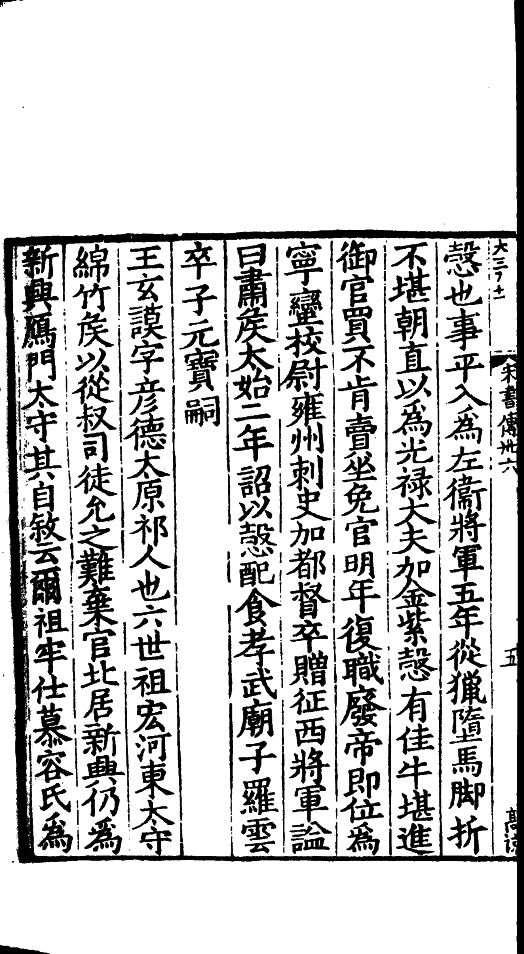 大三丁士
宋書傳卅六
五
愨也事平入為左衛將軍五年從獵墮馬脚折
不堪朝直以為光禄大夫加金紫愨有佳牛堪進
御官買不肯賣坐免官明年復職廢帝即位為
寧蠻校尉雍州刺史加都督卒贈征西將軍諡
曰肅矦太始二年詔以愨配食孝武廟子羅雲
卒子元寶嗣
王玄謨字彦德太原祁人也六世祖宏河東太守
綿竹矦以從叔司徒允之難棄官北居新興仍為
新興鴈門太守其自敘云爾祖牢仕慕容氏為